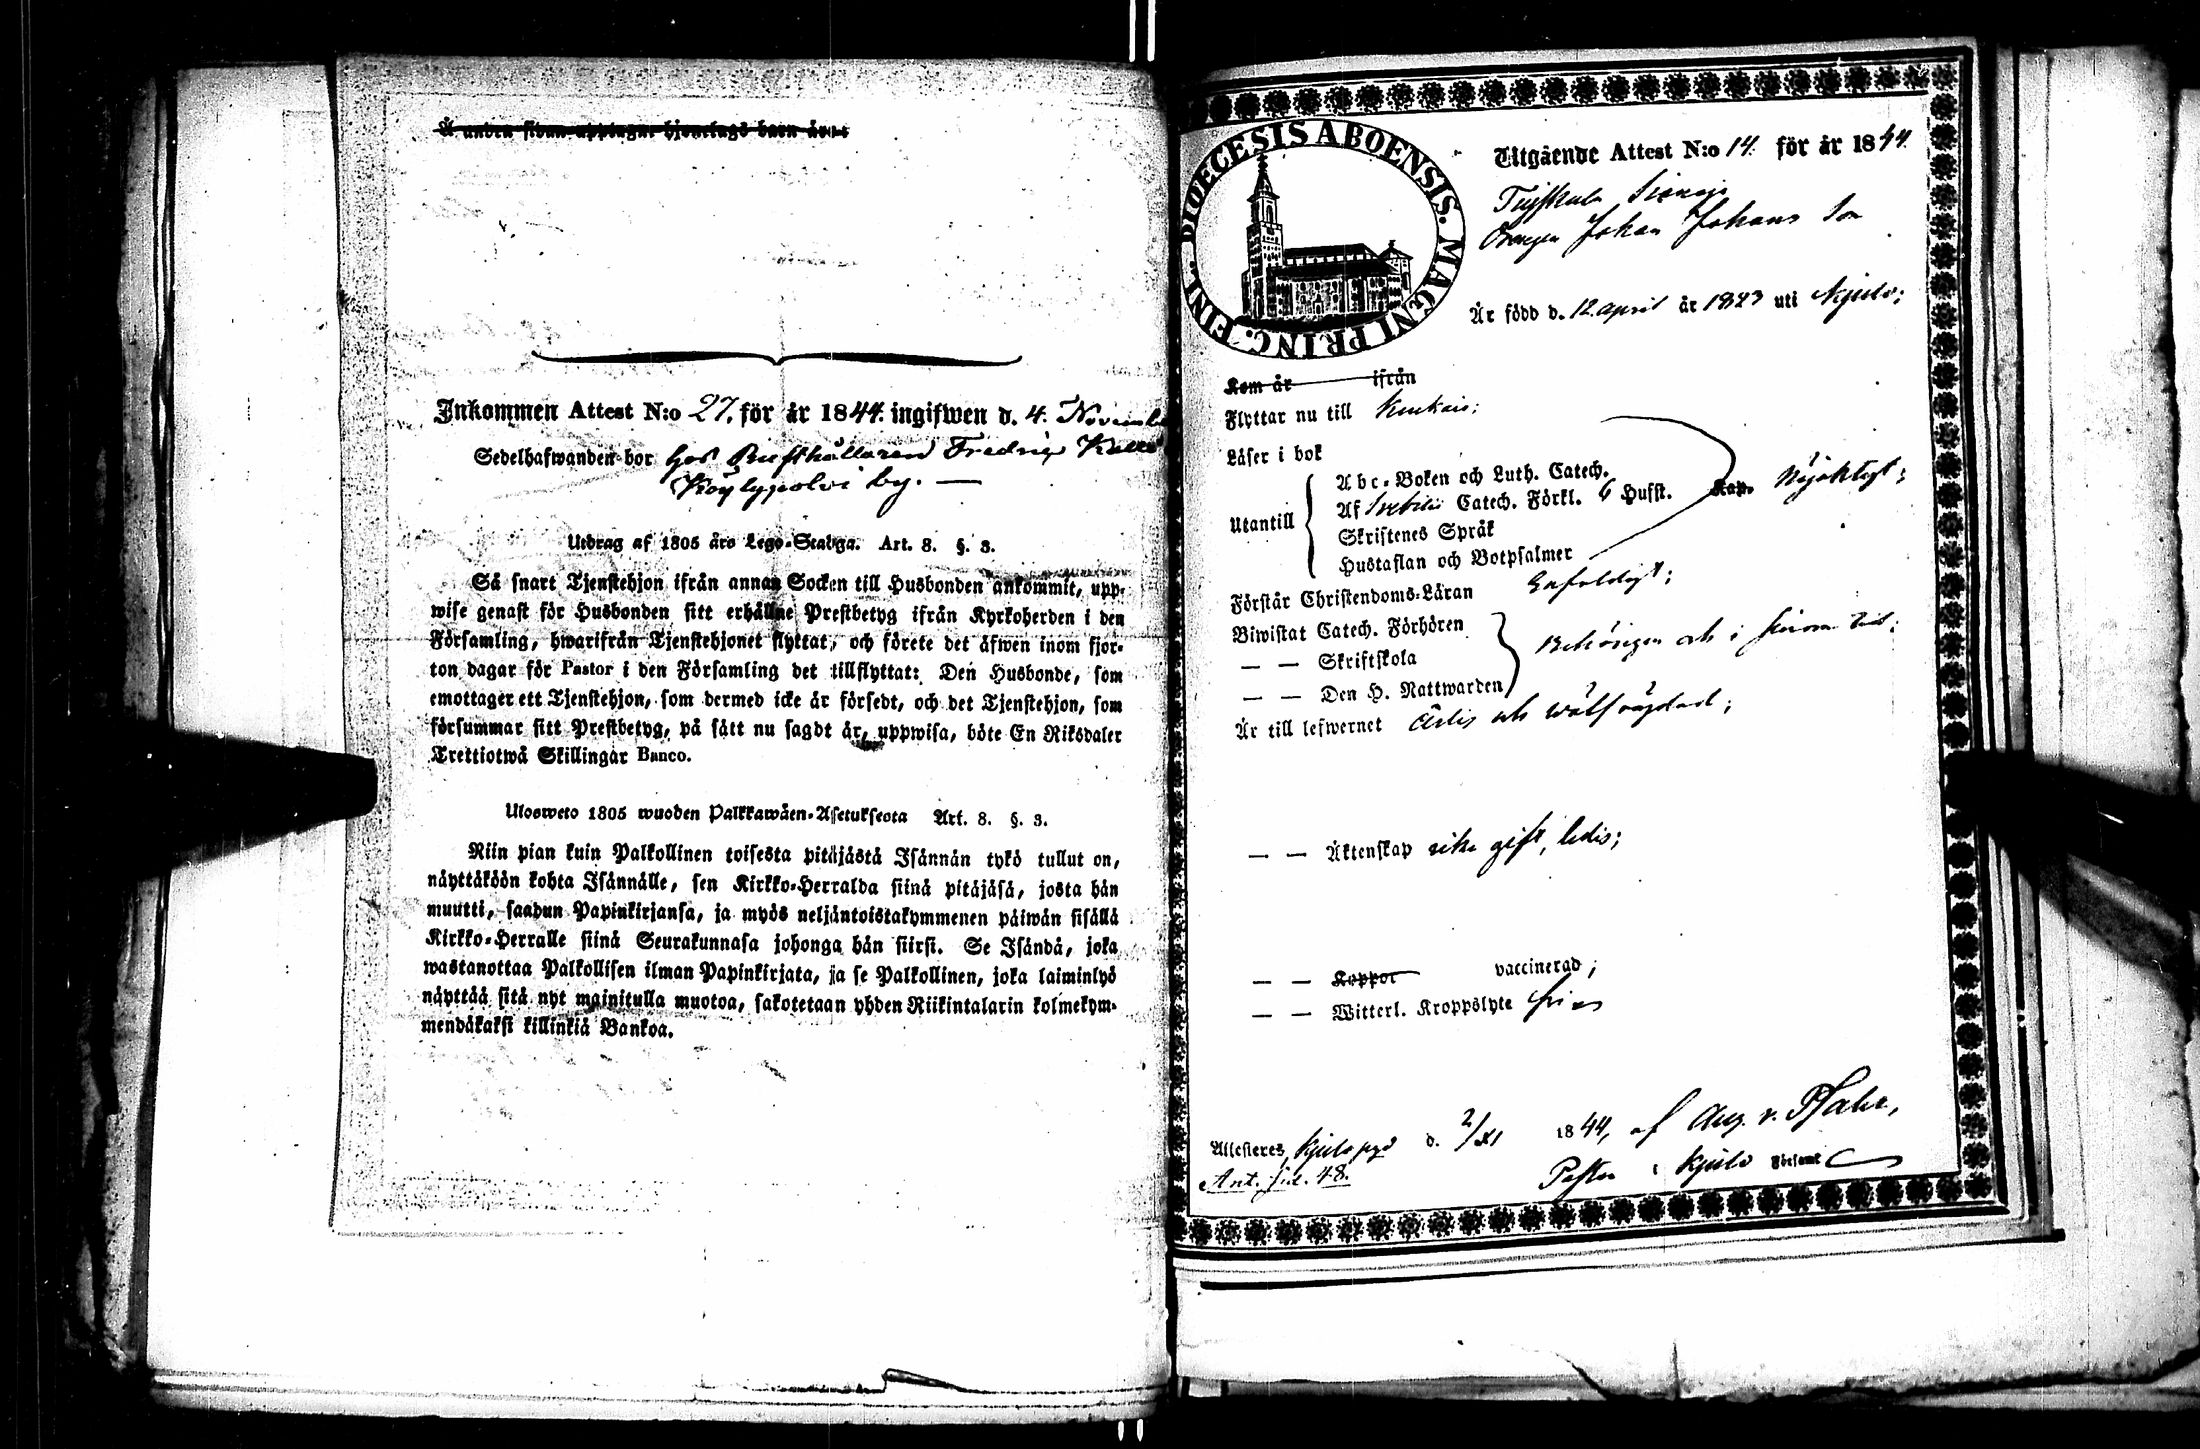 Å andra sidan upptagne hjonelags barn äro:
Inkommen Attest N:o 27. för år 1844. ingifwen d. 4. Novemb
Sedelhafwanden bor hos Rusthållaren Fredrig
Köylypolvi by. —
Utdrag af 1805 års Lego-Stadga. Art. 8. §. 3.
Så snart Tjenstehjon ifrån annan Socken till Husbonden ankommit, upp-
wise genast för Husbonden sitt erhållne Prestbetyg ifrån Kyrkoherden i den
Församling, hwarifrån Tjenstehjonet flyttat, och förete det äfwen inom fjor-
ton dagar för Pastor i den Församling det tillflyttat: Den Husbonde, som
emottager ett Tjenstehjon, som dermed icke är försedt, och det Tjenstehjon, som
försummar sitt Prestbetyg, på sätt nu sagdt är, uppwisa, böte En Riksdaler
Trettiotwå Skillingar Banco.
Ulosweto 1805 wuoden Palkkawäen-Asetuksesta Art. 8. §. 3.
Niin pian kuin Palkollinen toisesta pitäjästä Isännän tykö tullut on,
näyttäköön kohta Isännälle, sen Kirkko-Herralda siinä pitäjäsä, josta hän
muutti, saadun Papinkirjansa, ja myös neljäntoistakymmenen päiwän sisällä
Kirkko-Herralle siinä Seurakunnasa johonga hän siirsi. Se Isändä, joka
wastanottaa Palkollisen ilman Papinkirjata, ja se Palkollinen, joka laiminlyö
näyttää sitä nyt mainitulla muotoa, sakotetaan yhden Riikintalarin kolmekym-
mendäkaksi killinkiä Bankoa.
DIOECESIS ABOENSIS. MAGNI PRINC. FINL.
Utgående Attest N:o 14. för år 1844.
Drengen Johan Johans Son
Är född d. 12. april år 1823 uti Kjulo;
Kom år ifrån
Flyttar nu till Kiukais;
Läser i bok
Utantill
Abc-Boken och Luth. Catech.
Af Svebilii Catech. Förkl. 6 Hufst. Kap. Nöjaktigt;
Skriftenes Språk
Hustaflan och Botpsalmer
Förstår Christendoms-Läran Enfaldigt;
Biwistat Catech. Förhören
— — Skriftskola Behörigen och i sinom tid;
— — Den H. Nattwarden
Är till lefwernet Ärlig och wälfrägdad;
— — Äktenskap icke gift, ledig;
— — Koppor vaccinerad;
— — Witterl. Kroppslyte fri
Attesteres, Kjulo pgd d. 2/XI 1844, af Aug. v. Pfaler,
Ant. sid. 48. Pastor i Kjulo Församl.